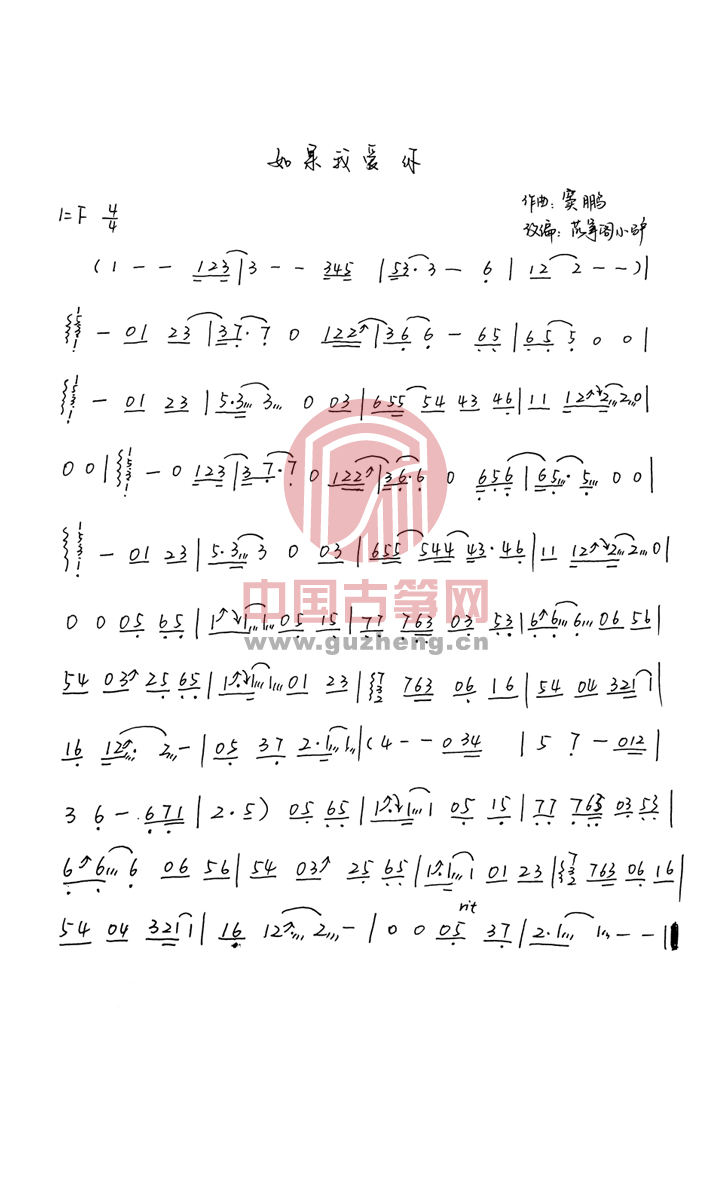 如果我爱你
1=F 4/4
作曲:窦鹏
改编:
(1 - - 123 | 3 - - 345 | 53·3 - 6 | 12 2 - -) |
1531 - 01 23 | 37·7 0 122 | 366 - 65 | 655 0 0 |
1531 - 01 23 | 5·3 3 0 03 | 655 54 43 46 | 11 122 20 |
0 0 | 1531 - 0 123 | 37·7 0 122 | 36·6 0 656 | 65· 5 0 0 |
1531 - 01 23 | 5·3 3 0 03 | 655 544 43·46 | 11 122 20 |
中国古筝网
0 0 05 65 | 11 1 05 15 | 77 763 03 53 | 66 6 06 56 |
www.guzheng.cn
54 03 25 65 | 1·11 01 23 | 732 763 06 16 | 54 04 321 1 |
16 12· 2 - | 05 37 2·1 1 | (4 - - 034 | 5 7 - 012 |
3 6 - 671 | 2·5) 05 65 | 1·1 1 05 15 | 77 763 03 53 |
66 6 06 56 | 54 03 25 65 | 1·1 1 01 23 | 732 763 06 16 |
rit
54 04 321 1 | 16 12 2 - | 0 0 05 37 | 2·1 1 - - ||